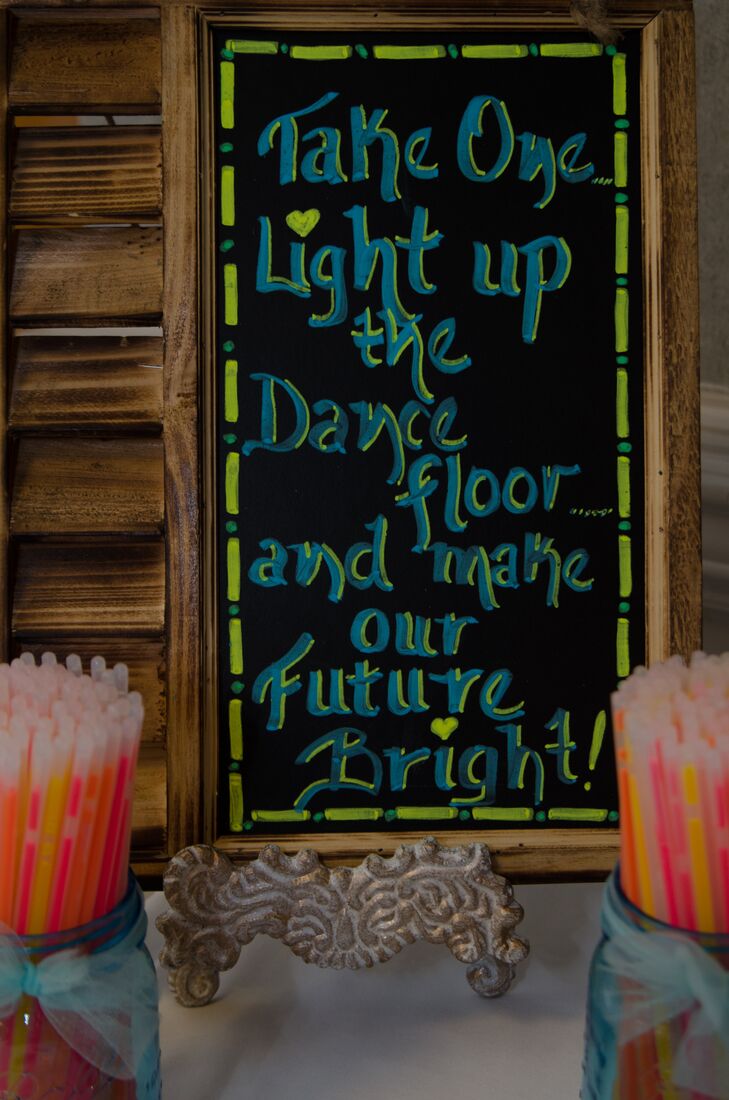 Take One...
Light up
the
Dance
floor.....
and make
our
Future
Bright!